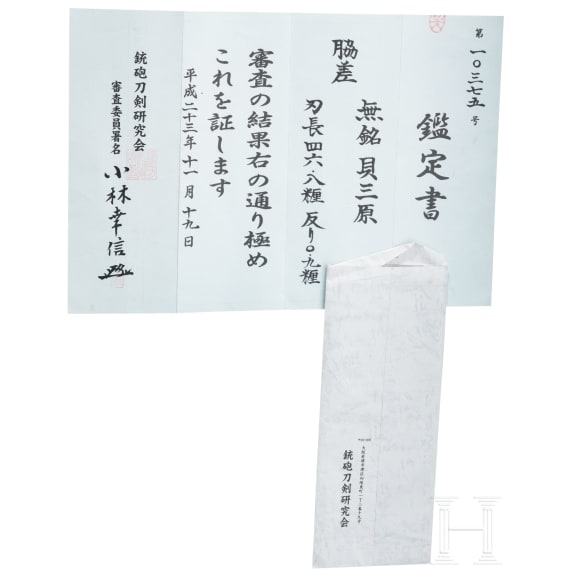 第一〇三七五号
鑑定書
脇差
無銘 貝三原
刃長四六.八糎 反り〇.九糎
審査の結果右の通り極め
これを証します
平成二十三年十一月十九日
銃砲刀剣研究会
審査委員署名
小林幸信
銃砲刀剣研究会
H